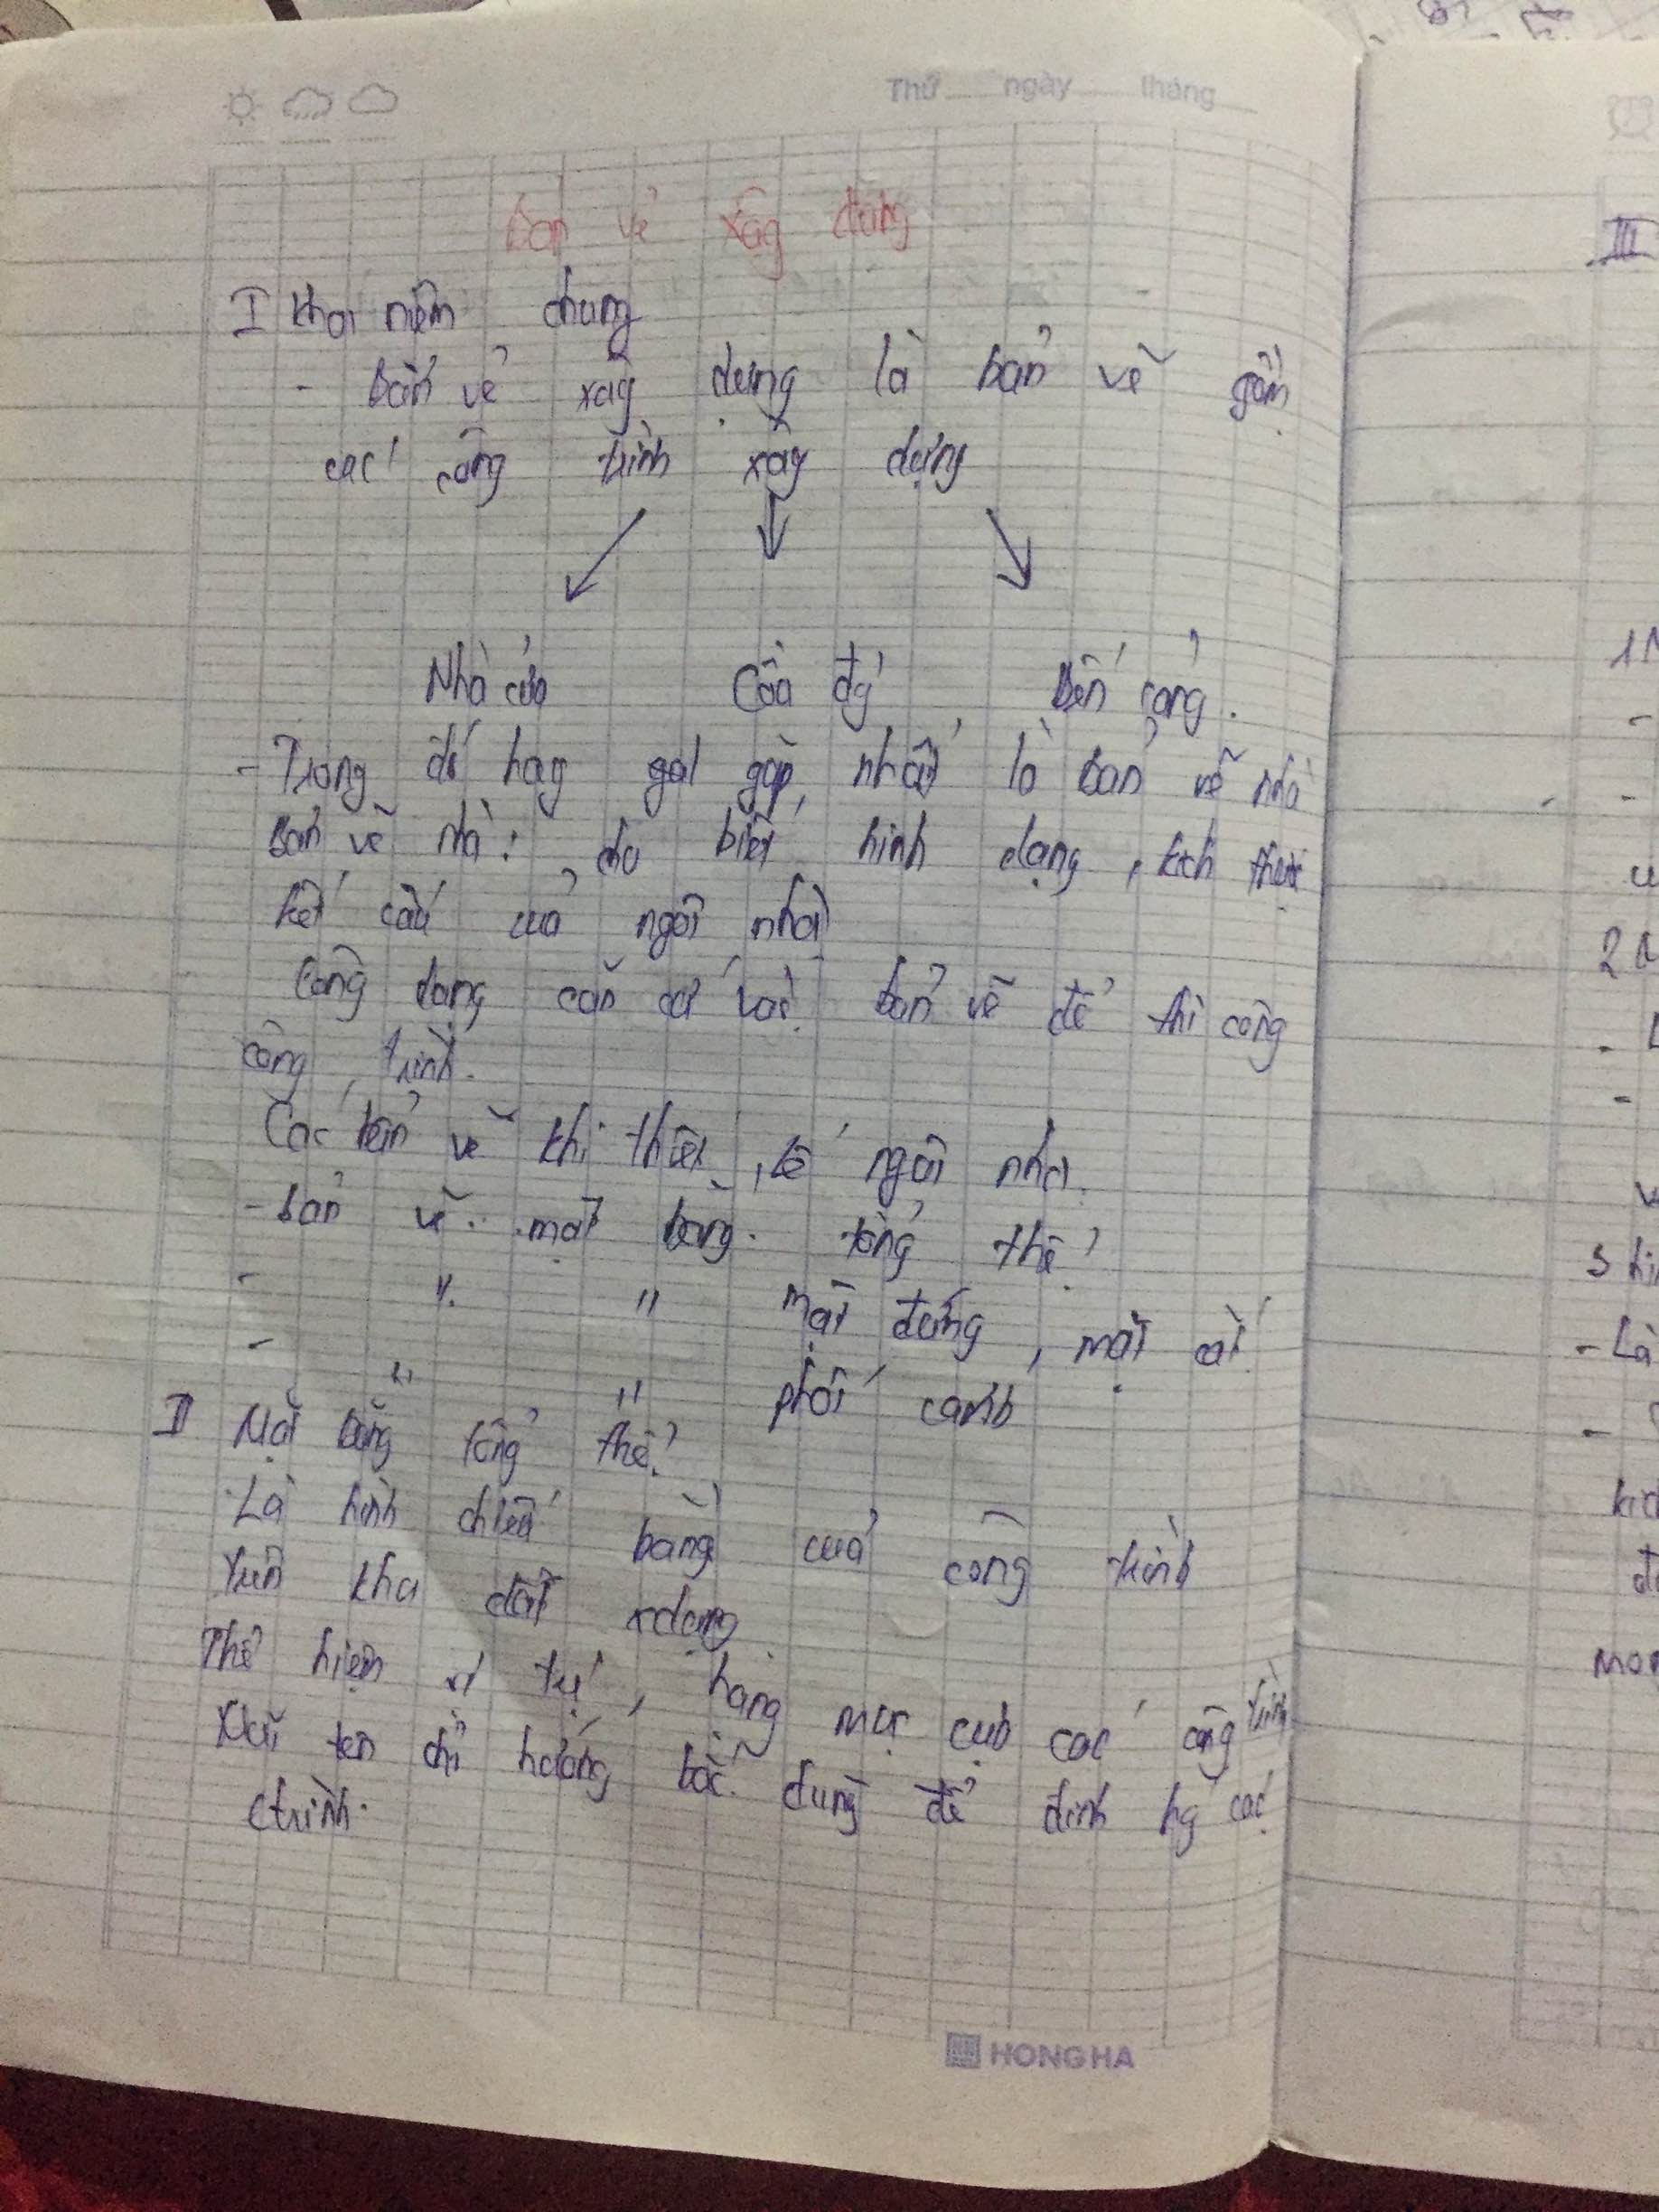 Thứ ngày tháng
Bản vẽ xây dựng
I Khái niệm chung
- Bản vẽ xây dựng là bản vẽ gồm
các công trình xây dựng
Nhà cửa Cầu Bến cảng.
- Trong đó hay gặp nhất là bản vẽ nhà
Bản vẽ nhà: cho biết hình dạng, kích thước
kết cấu của ngôi nhà
Công căn cứ vào bản vẽ để thi công
công trình.
Các bản vẽ khi thiết kế ngôi nhà.
- bản vẽ mặt bằng tổng thể
- " " mặt đứng, mặt cắt
- " " phối cảnh
II Mặt bằng tổng thể
Là hình chiếu bằng của công trình
trên khu đất xdựng
Thể hiện vị trí, hàng mục các công trình
Mũi tên chỉ hướng bắc dùng để định hg các
ctrình.
HONG HA
III
1
-
-
2
-
-
3
- Là
-